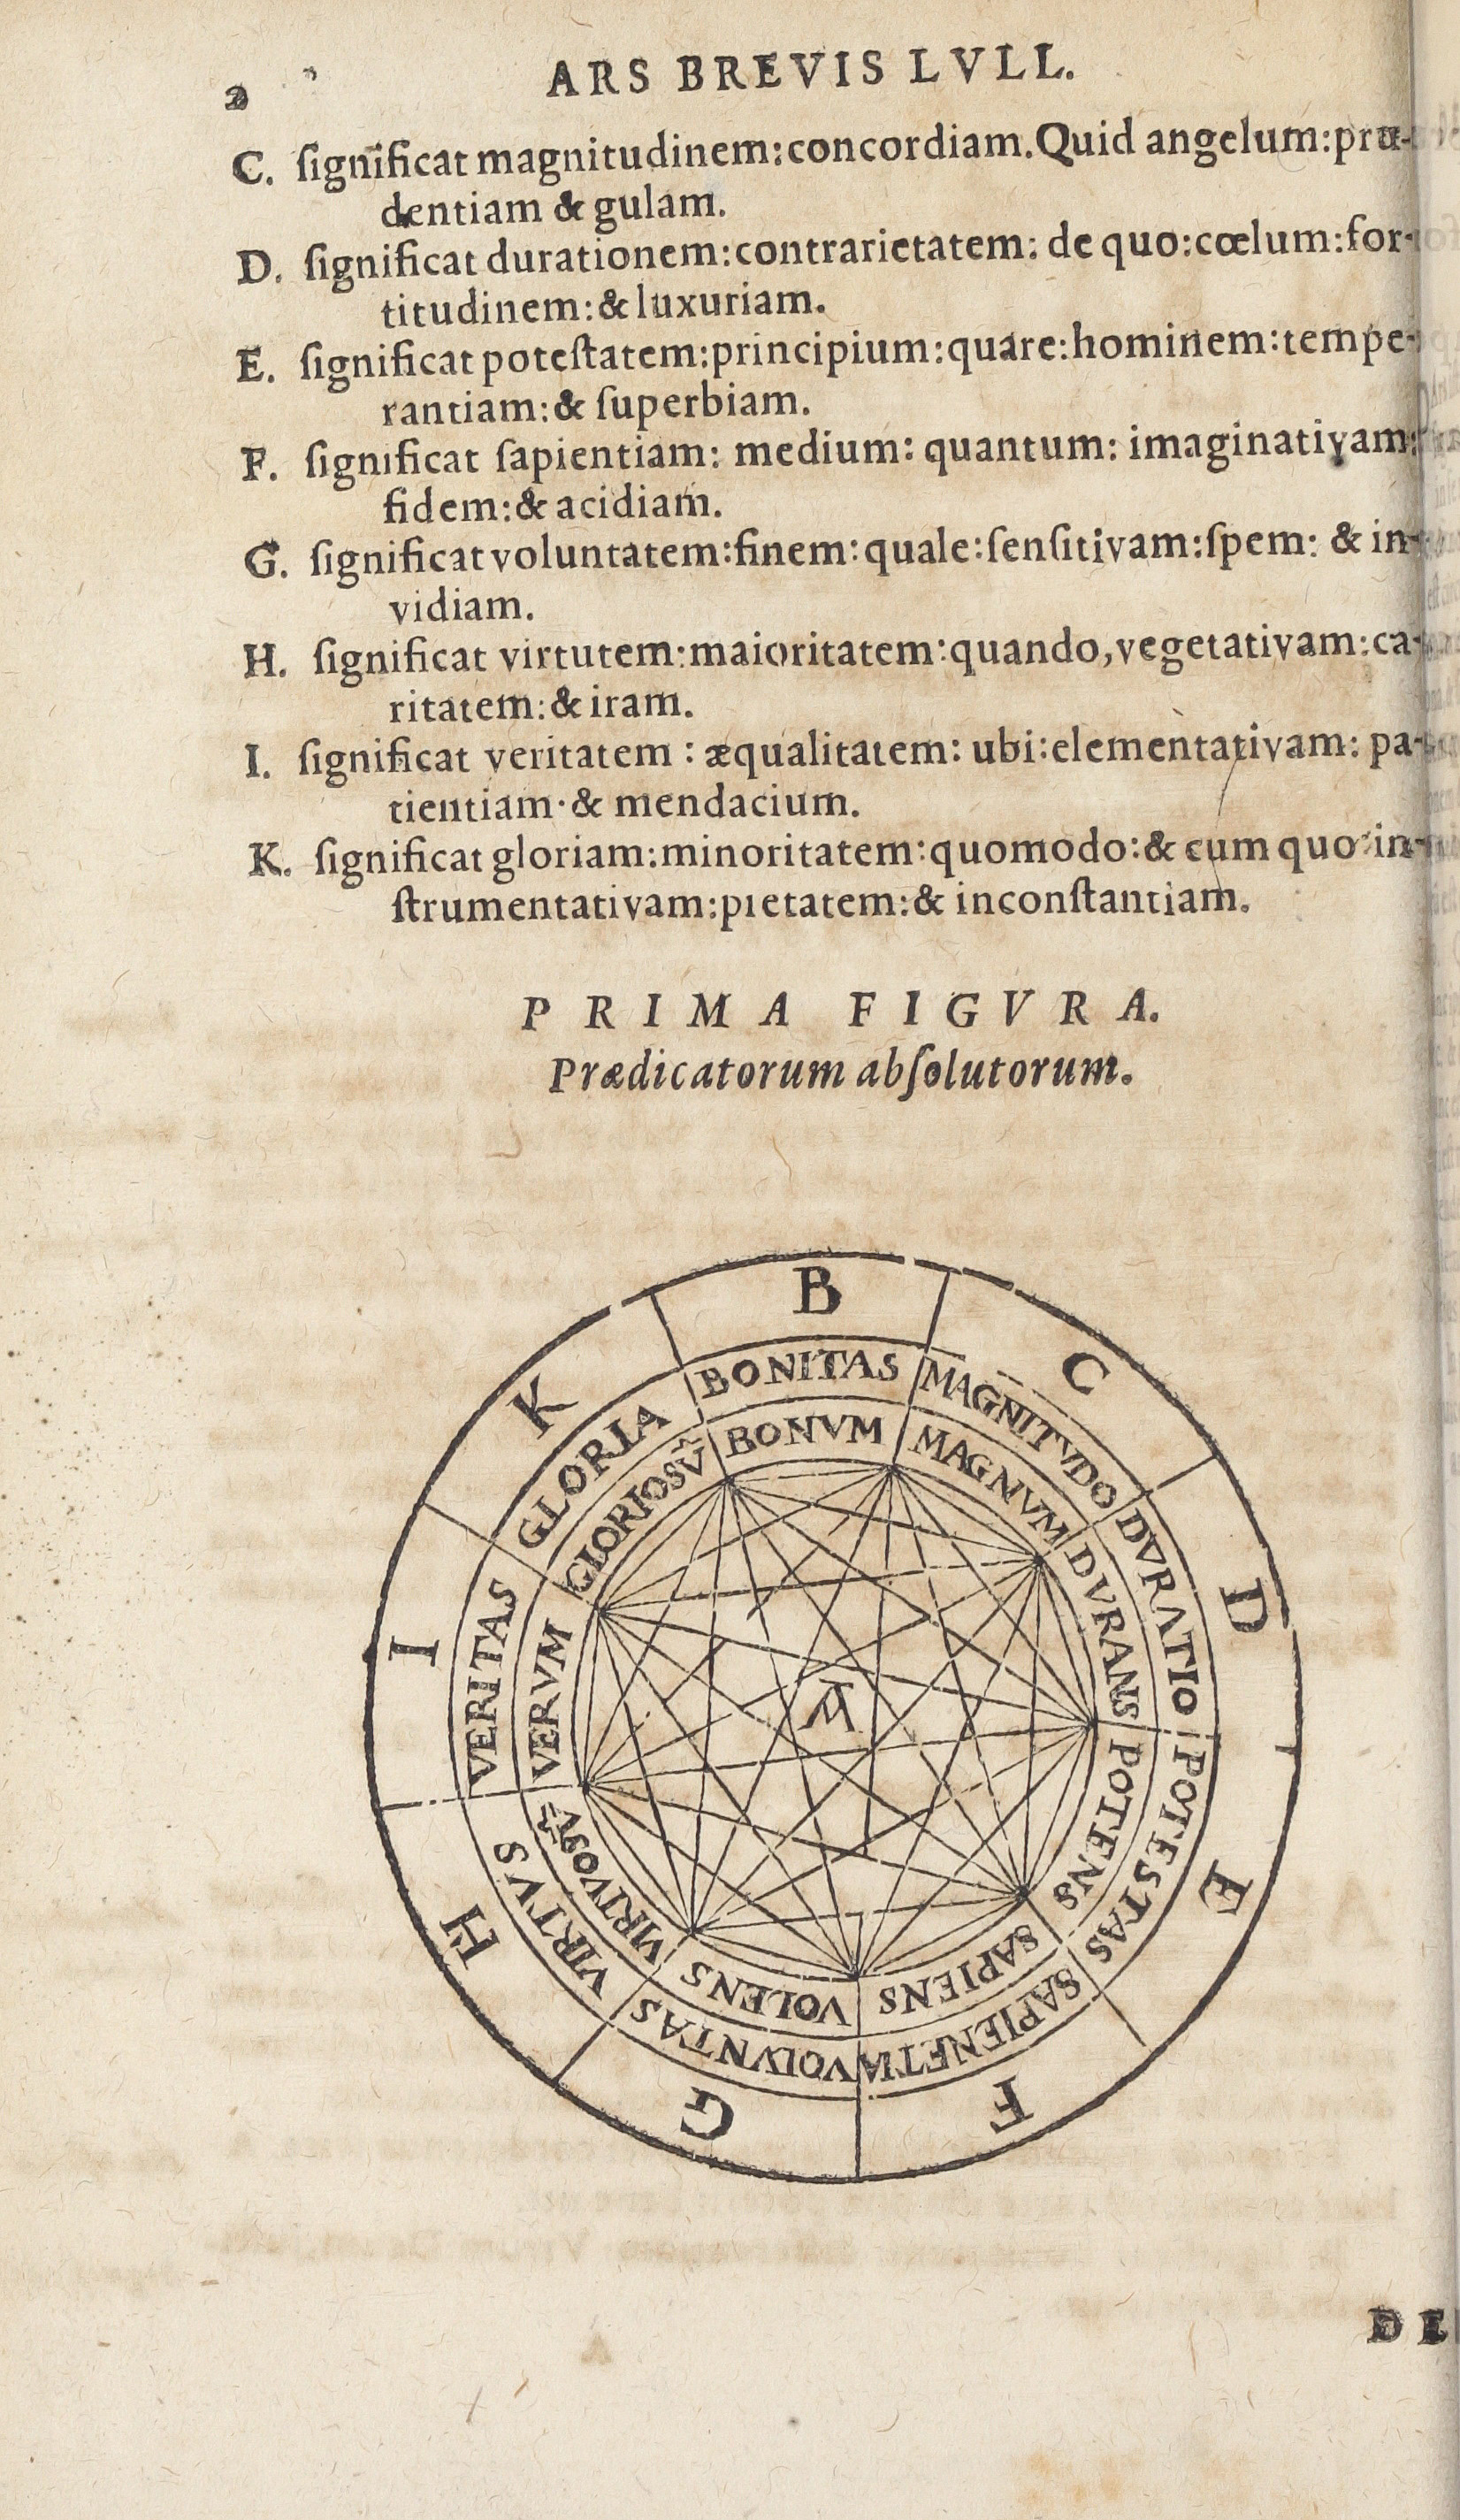 2 ARS BREVIS LVLL.
C. ſignificat magnitudinem:concordiam.Quid angelum:pru-
dentiam & gulam.
D. ſignificat durationem:contrarietatem: de quo:cœlum:for-
titudinem:& luxuriam.
E. ſignificat poteſtatem:principium:quare:hominem:tempe-
rantiam:& ſuperbiam.
F. ſignificat ſapientiam: medium: quantum: imaginativam:
fidem:& acidiam.
G. ſignificat voluntatem:finem:quale:ſenſitivam:ſpem: & in-
vidiam.
H. ſignificat virtutem:maioritatem:quando,vegetativam:ca-
ritatem:& iram.
I. ſignificat veritatem : æqualitatem: ubi:elementativam: pa-
tientiam·& mendacium.
K. ſignificat gloriam:minoritatem:quomodo:& cum quo:in-
ſtrumentativam:pietatem:& inconſtantiam.
PRIMA FIGVRA.
Prædicatorum abſolutorum.
B
C
D
E
F
G
H
I
K
BONITAS
MAGNITVDO
DVRATIO
POTESTAS
SAPIENETIA
VOLVNTAS
VIRTVS
VERITAS
GLORIA
BONVM
MAGNVM
DVRANS
POTENS
SAPIENS
VOLENS
VIRTVOSṼ
VERVM
GLORIOSṼ
A
DE